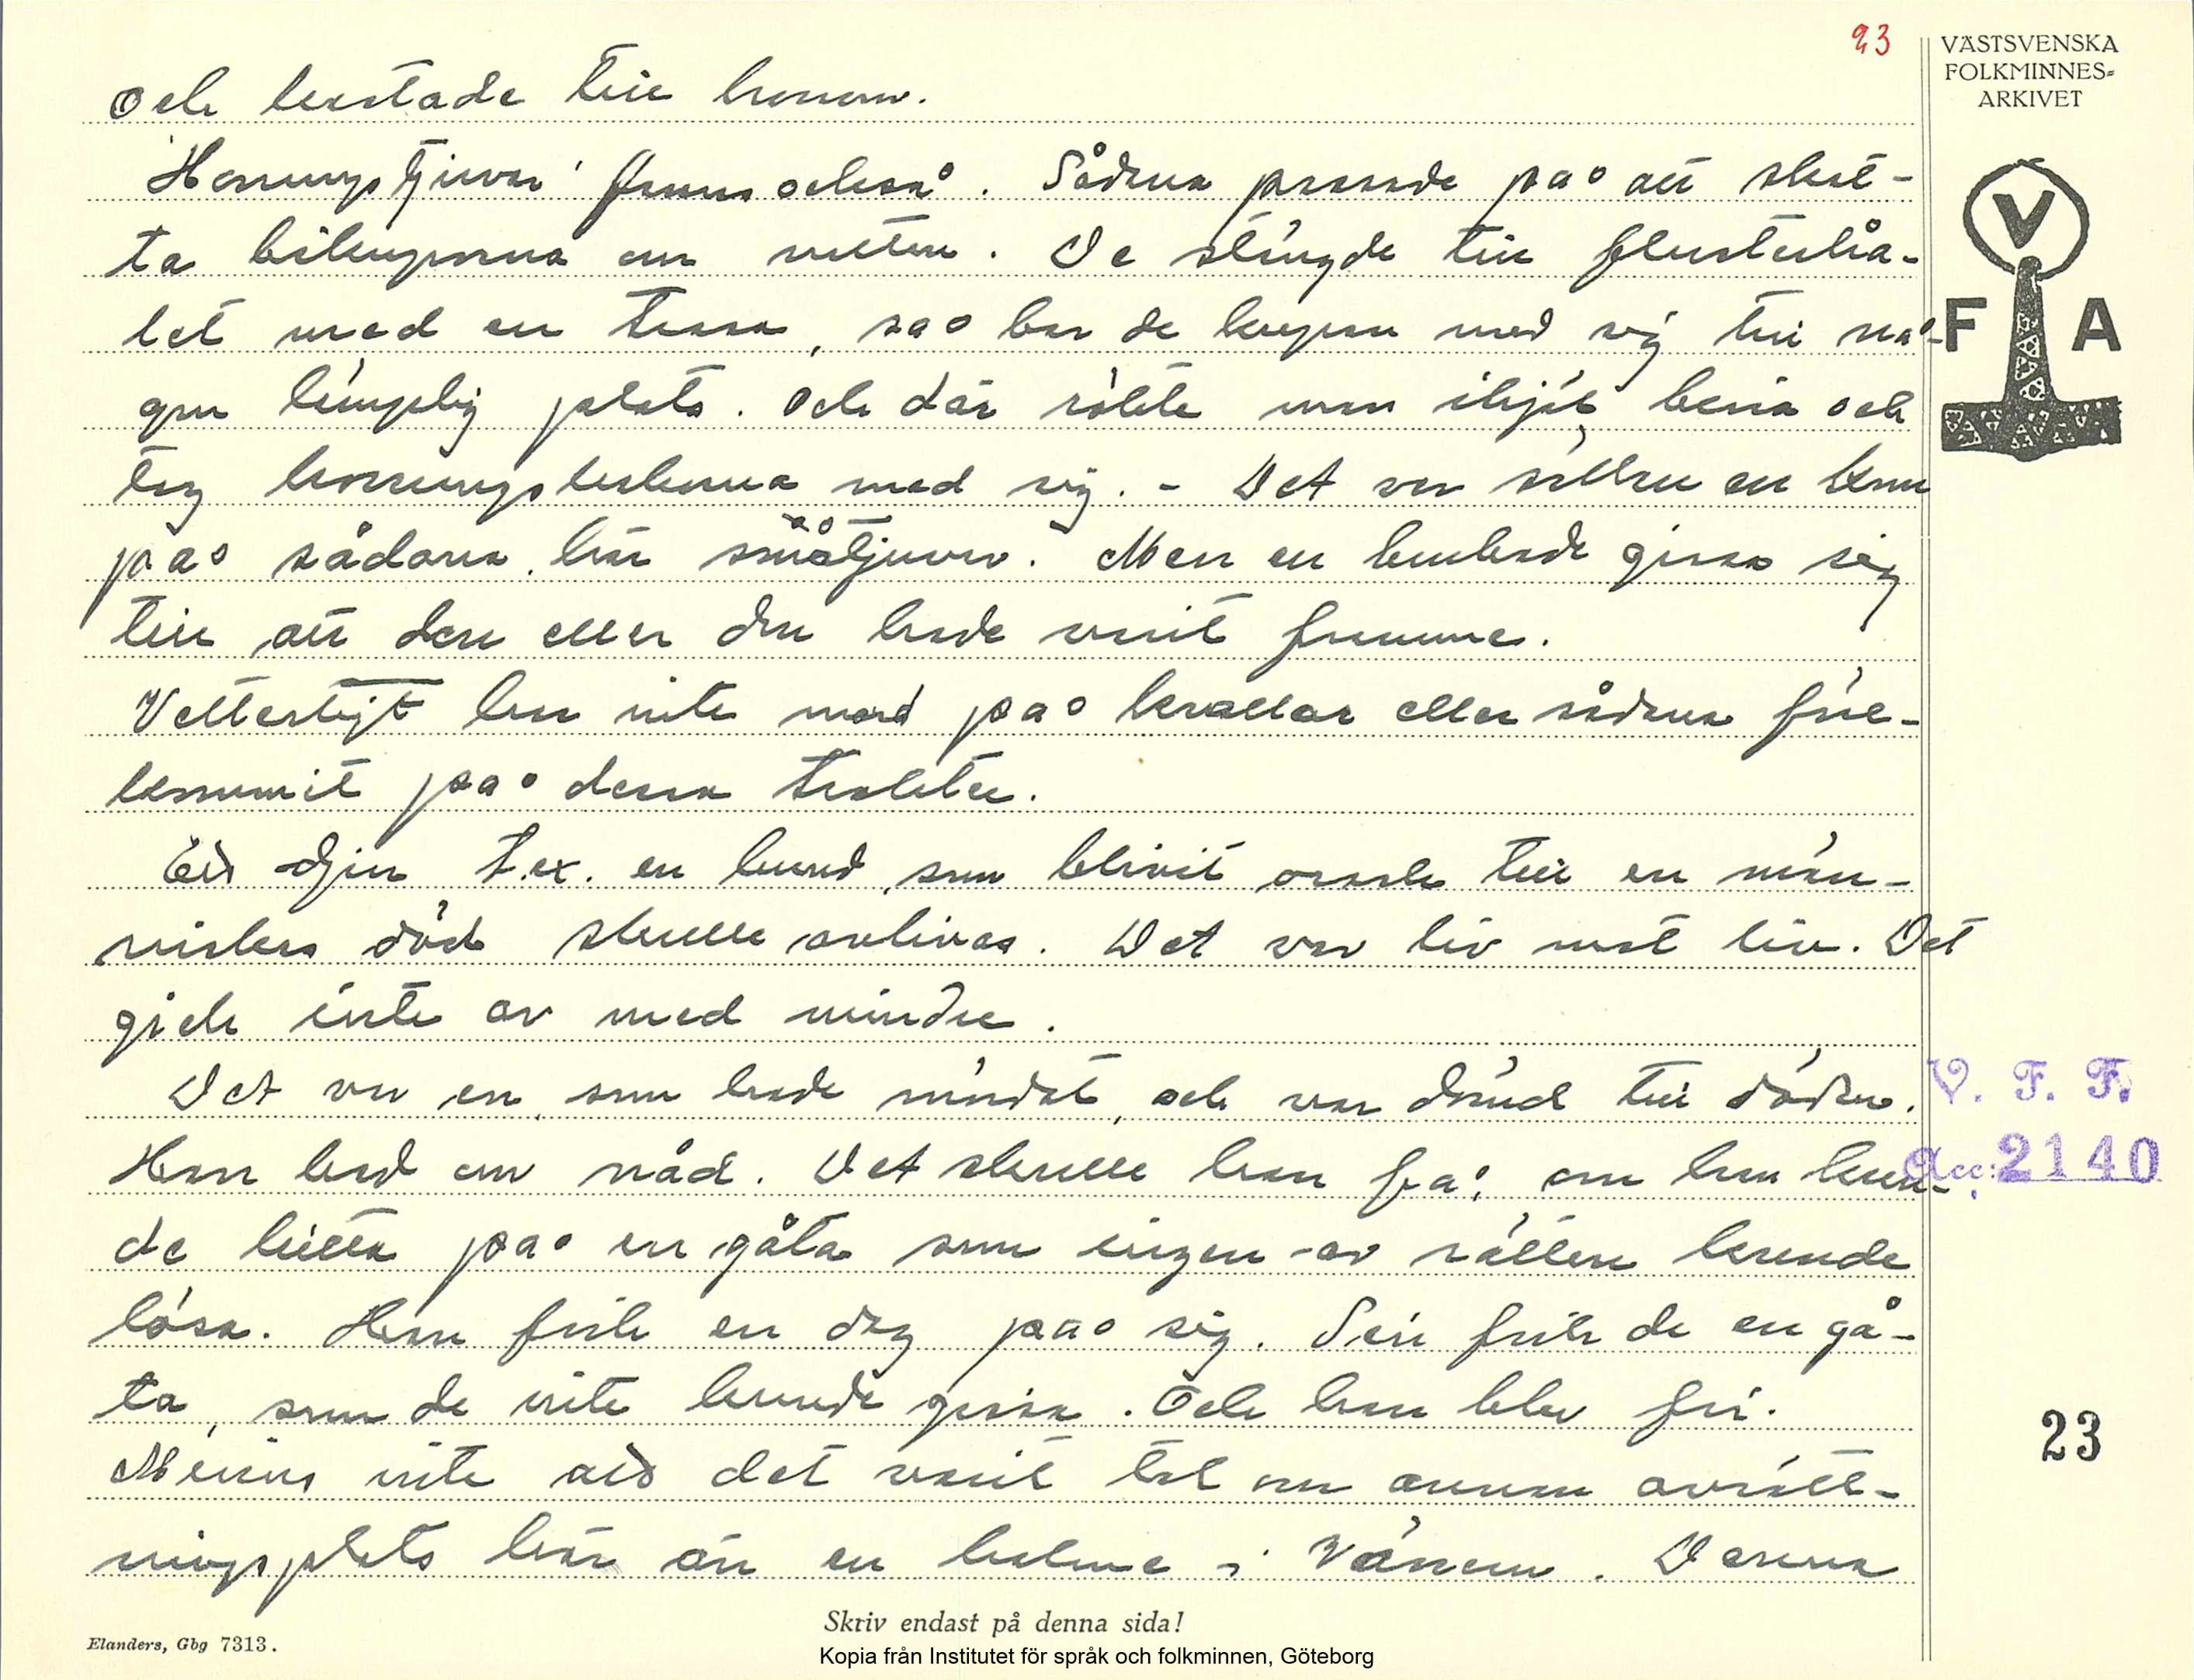 23
VÄSTSVENSKA
FOLKMINNES-
ARKIVET
V
F A
och kastade till honom.
Honungstjuvar fanns också. Sådana passade på att slut-
ta bikuporna om natten. De stängde till flusterhå-
let med en trasa, så bar de kupan med sig till nå-
gon lämplig plats. Och där rökte man ihjäl bina och
tog honungskakorna med sig. - Det var sällan en kom
på sådana här småtjuvar. Men en kunde gissa sig
till att den eller den hade varit framme.
Vetterligt har inte mord på knallar eller sådana före-
kommit på dessa trakter.
Ett djur t.ex. en hund, som blivit orsak till en män-
niskas död skulle avlivas. Det var liv mot liv. Det
gick inte av med mindre.
Det var en, som hade mördat, och var dömd till döden.
Han bad om nåd. Det skulle han få, om han kun-
de hitta på en gåta som ingen av rätten kunde
lösa. Han fick en dag på sig. Sen fick de en gå-
ta, som de inte kunde gissa. Och han blev fri.
Minns inte att det varit tal om annan avrätt-
ningsplats här än en holme i Vänern. Denna
V. F. F.
Acc: 2140
23
Skriv endast på denna sida!
Elanders, Gbg 7313.
Kopia från Institutet för språk och folkminnen, Göteborg